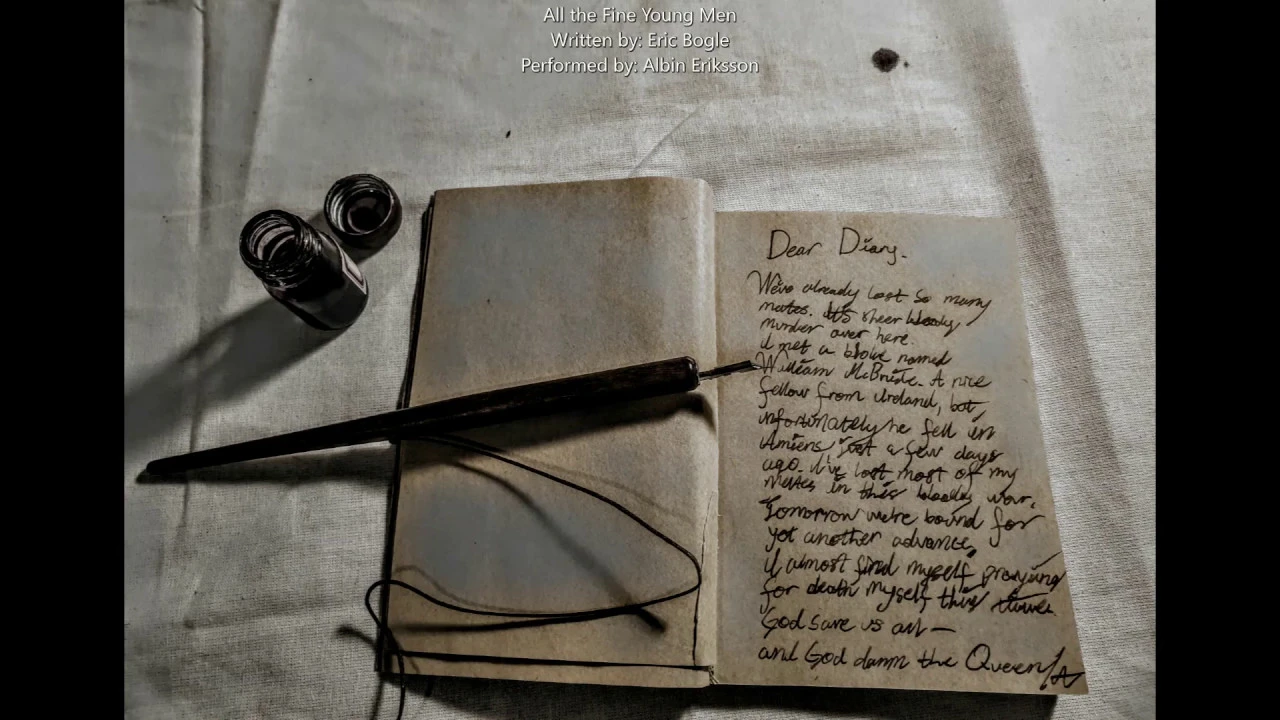 All the Fine Young Men
Written by: Eric Bogle
Performed by: Albin Eriksson
Dear Diary.
We've already lost so many
mates. It's sheer bloody
murder over here.
I met a bloke named
William McBride. A nice
fellow from Ireland, but,
unfortunately he fell in
Amiens just a few days
ago. I've lost most of my
mates in this bloody war.
Tomorrow we're bound for
yet another advance,
I almost find myself praying
for death myself this time.
God save us all —
and God damn the Queen/A